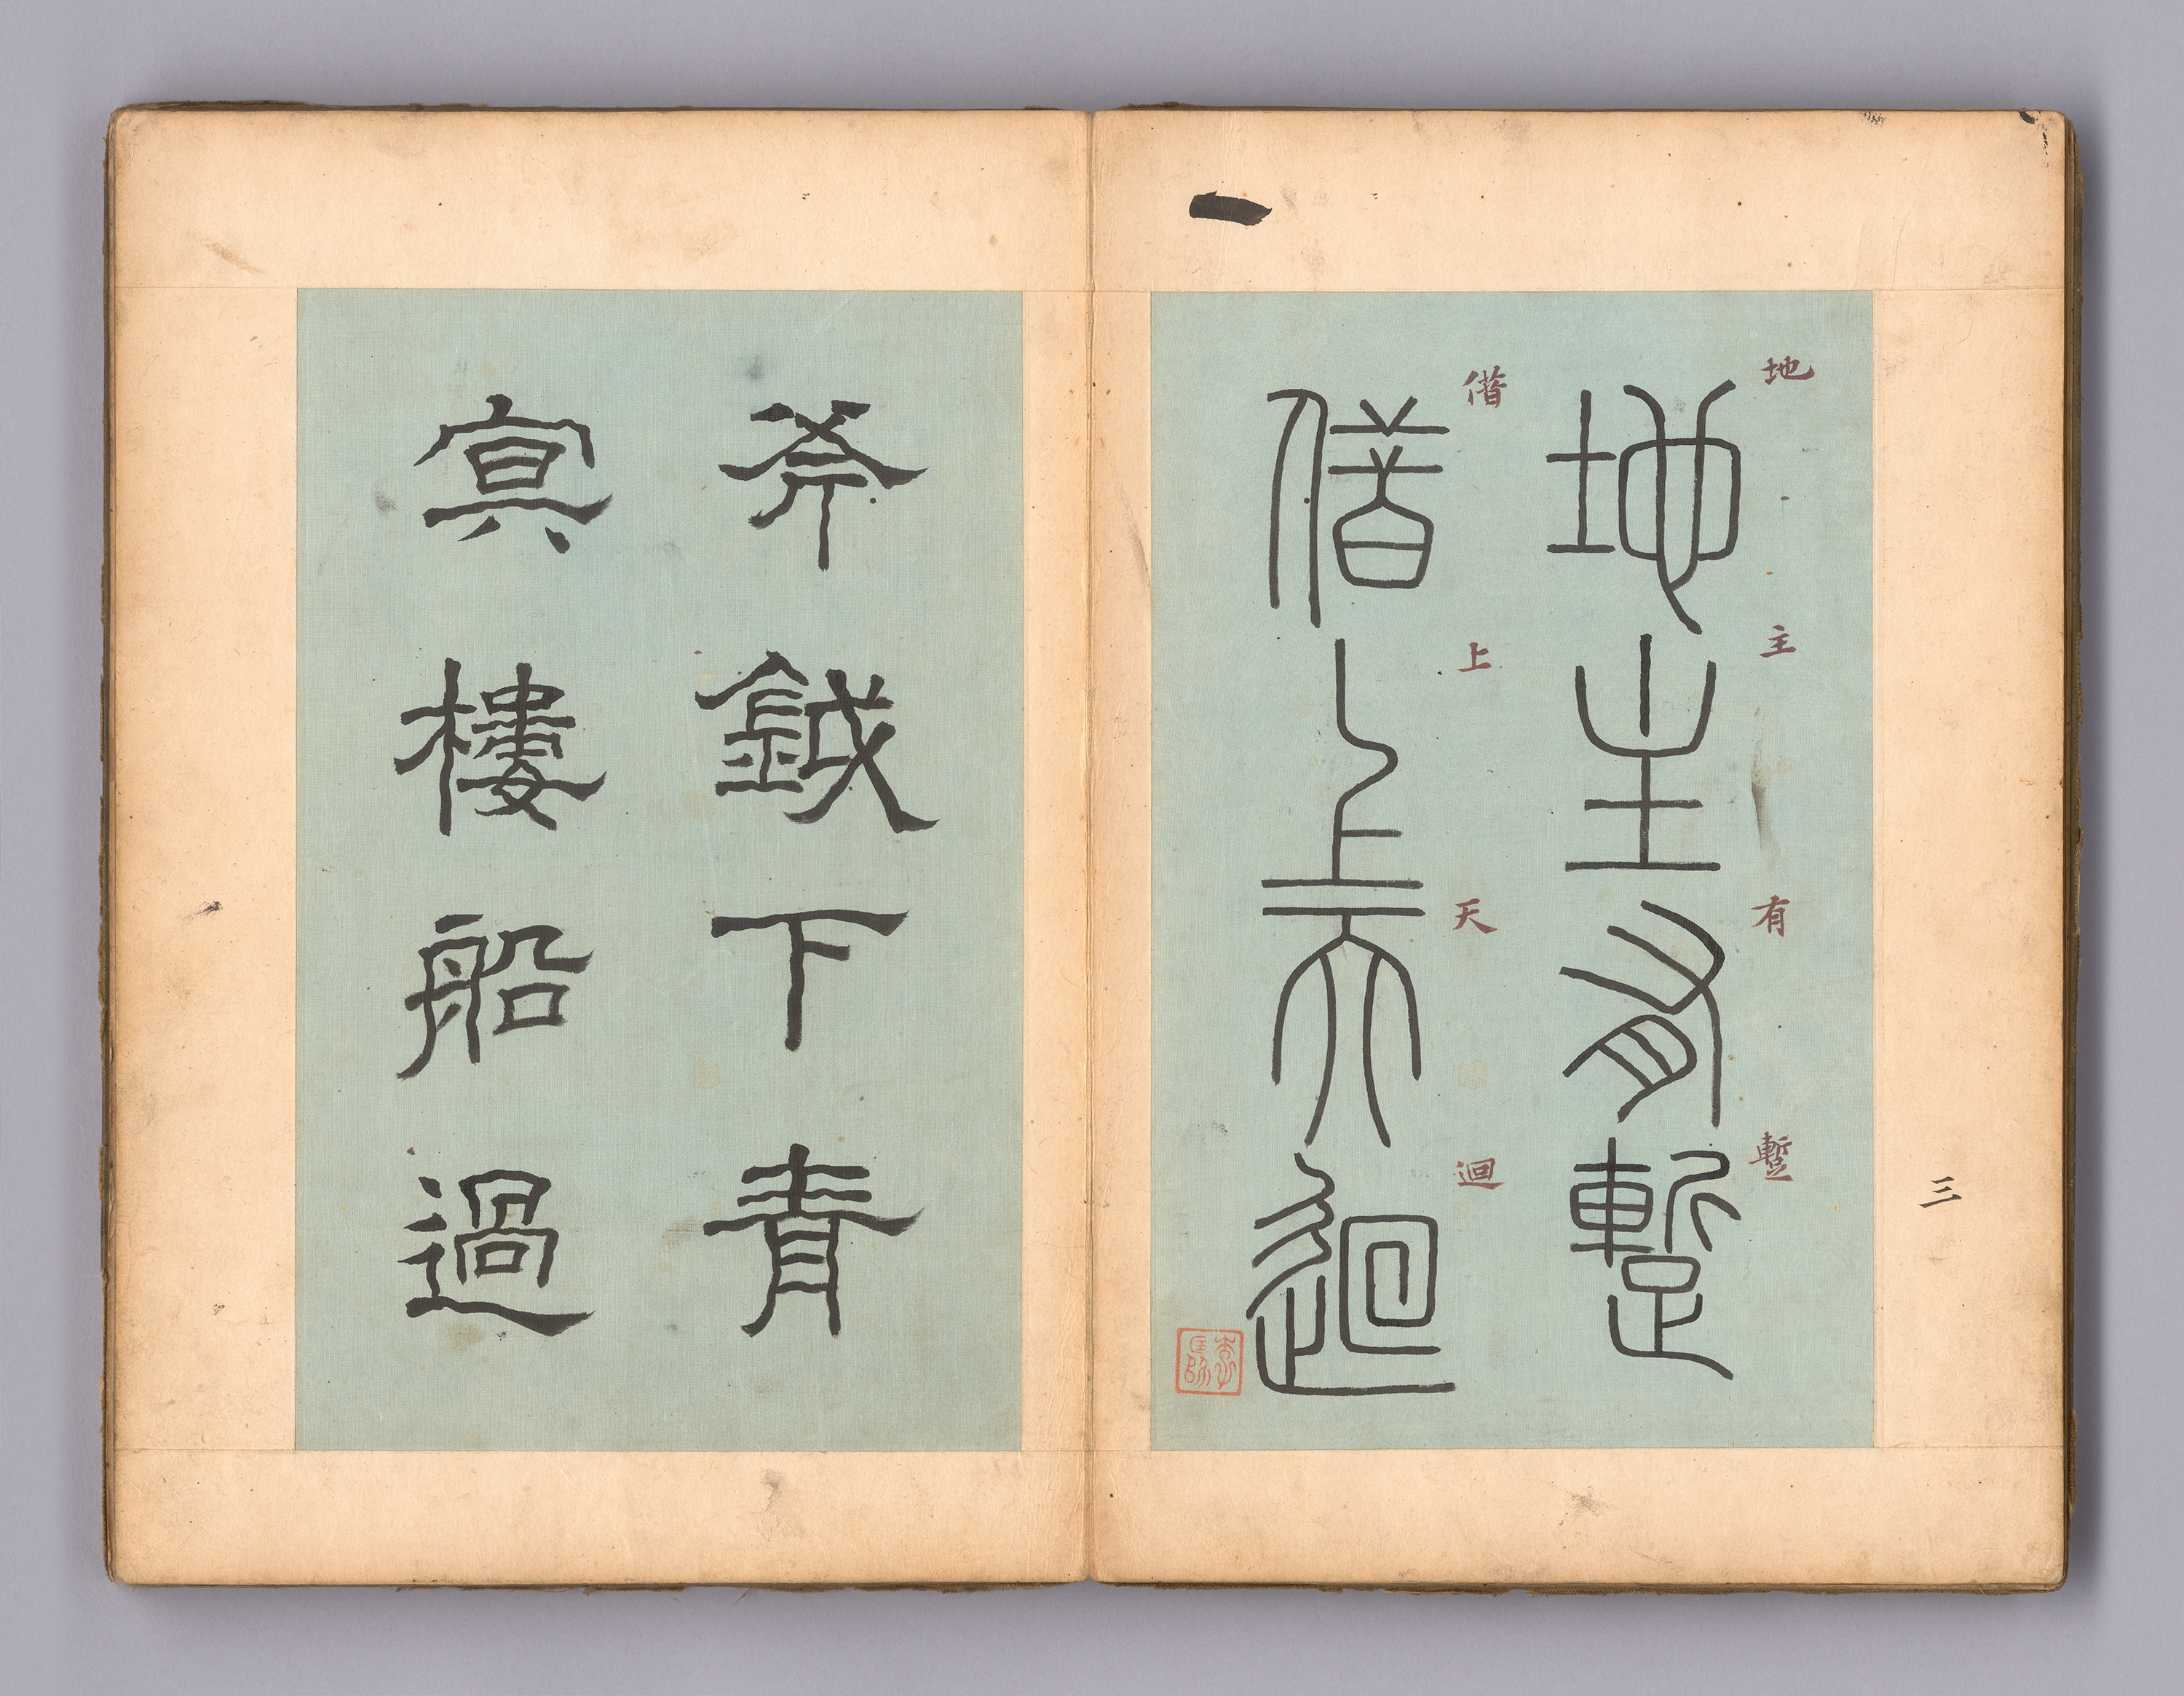 三
地主有蹔
地主有蹔
借上天迴
借上天迴
斧鉞下青
㝠樓船過